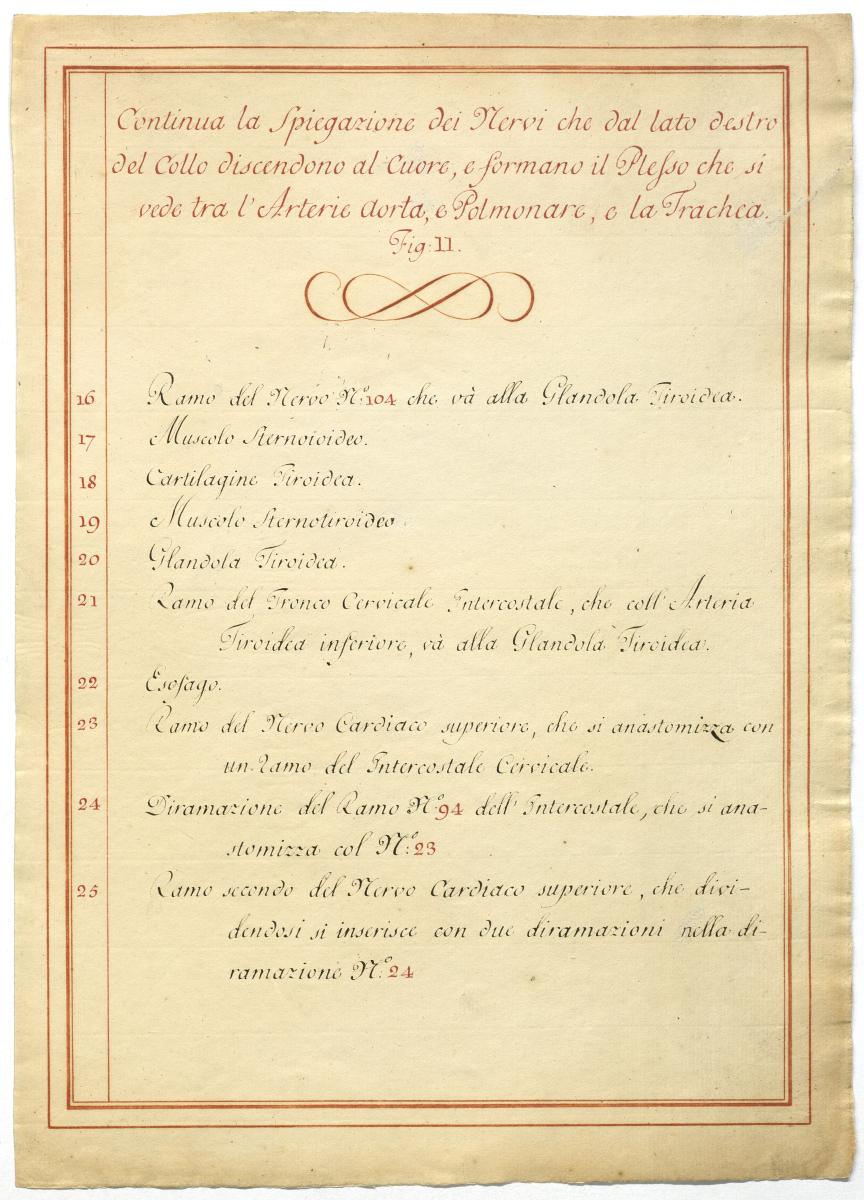 Continua la Spiegazione dei Nervi che dal lato destro
del Collo discendono al Cuore, e formano il Plesso che si
vede tra l'Arterie Aorta, e Polmonare, e la Trachea.
Fig: 11.
16 Ramo del Nervo N.º 104 che và alla Glandola Tiroidea.
17 Muscolo Sternoioideo.
18 Cartilagine Tiroidea.
19 Muscolo Sternotiroideo.
20 Glandola Tiroidea.
21 Ramo del Tronco Cervicale Intercostale, che coll'Arteria
Tiroidea inferiore, và alla Glandola Tiroidea.
22 Esofago.
23 Ramo del Nervo Cardiaco superiore, che si anastomizza con
un Ramo del Intercostale Cervicale.
24 Diramazione del Ramo N.º 94 dell'Intercostale, che si ana-
stomizza col N.º 23
25 Ramo secondo del Nervo Cardiaco superiore, che divi-
dendosi si inserisce con due diramazioni nella di-
ramazione N.º 24